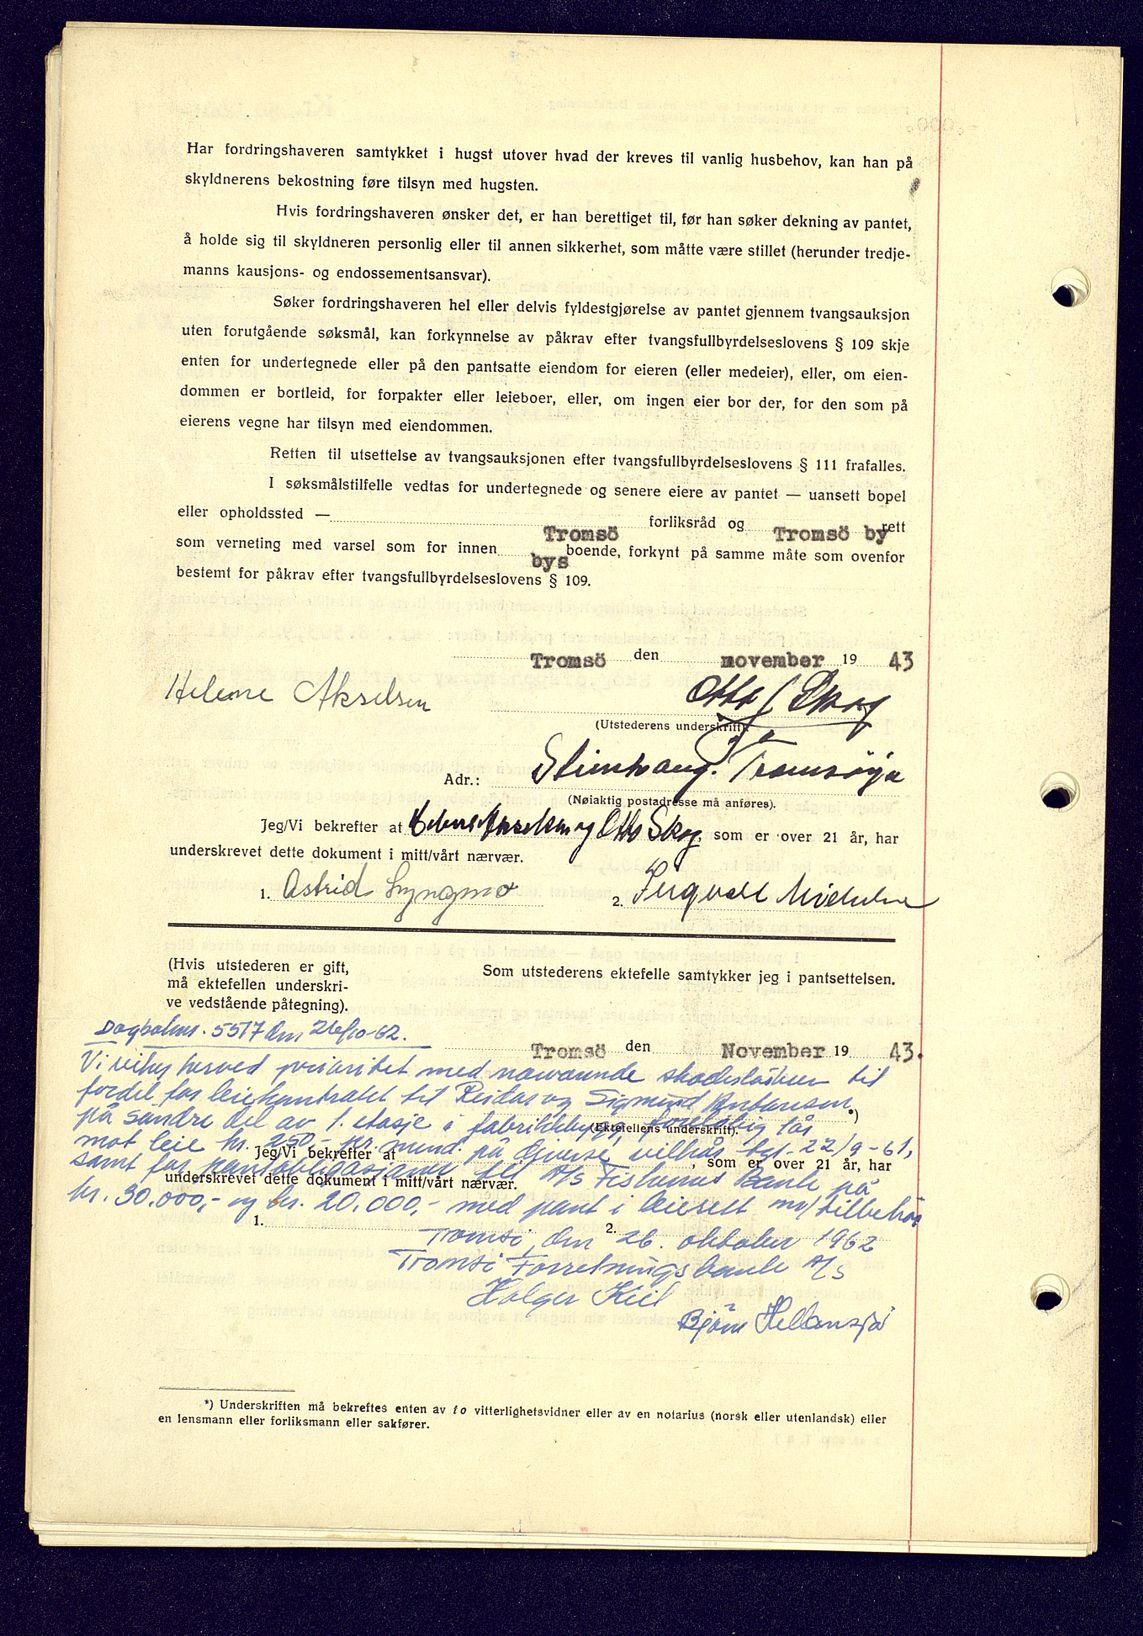 Har fordringshaveren samtykket i hugst utover hvad der kreves til vanlig husbehov, kan han på
skyldnerens bekostning føre tilsyn med hugsten.
Hvis fordringshaveren ønsker det, er han berettiget til, før han søker dekning av pantet,
å holde sig til skyldneren personlig eller til annen sikkerhet, som måtte være stillet (herunder tredje-
manns kausjons- og endossementsansvar).
Søker fordringshaveren hel eller delvis fyldestgjørelse av pantet gjennem tvangsauksjon
uten forutgående søksmål, kan forkynnelse av påkrav efter tvangsfullbyrdelseslovens § 109 skje
enten for undertegnede eller på den pantsatte eiendom for eieren (eller medeier), eller, om eien-
dommen er bortleid, for forpakter eller leieboer, eller, om ingen eier bor der, for den som på
eierens vegne har tilsyn med eiendommen.
Retten til utsettelse av tvangsauksjonen efter tvangsfullbyrdelseslovens § 111 frafalles.
I søksmålstilfelle vedtas for undertegnede og senere eiere av pantet — uansett bopel
eller opholdssted — Tromsö forliksråd og Tromsö by rett
som verneting med varsel som for innen bys boende, forkynt på samme måte som ovenfor
bestemt for påkrav efter tvangsfullbyrdelseslovens § 109.
Tromsö den november 19 43
Helene Akselsen Otto Skog
(Utstederens underskrift).
Adr.: Tromsøya
(Nøiaktig postadresse må anføres).
Jeg/Vi bekrefter at Helene Akselsen og Otto Skog, som er over 21 år, har
underskrevet dette dokument i mitt/vårt nærvær.
1. Astrid Lyngmo 2. Ingvald
(Hvis utstederen er gift,
må ektefellen underskri-
ve vedstående påtegning).
Som utstederens ektefelle samtykker jeg i pantsettelsen.
Dagboknr. 5517 den 26/10-62.
Tromsö den November 19 43.
Vi viker herved prioritet med nærværende skadesløsbrev til
fordel for leiekontrakt til Reidar og Sigmund
på søndre del av 1. etasje i fabrikkbygg,
*)
(Ektefellens underskrift).
mot leie kr. 250,- pr. mnd. på diverse vilkår dat. 22/9-61,
Jeg/Vi bekrefter at , som er over 21 år, har
samt for pantobligasjoner til A/S Fiskernes Bank på
underskrevet dette dokument i mitt/vårt nærvær.
kr. 30.000,- og kr. 20.000,- med pant i leierett m/tilbehør
1. 2.
Tromsö, den 26. oktober 1962
Tromsö Forretningsbank A/S
Holger Kiil
Bjørn Hellansjø
*) Underskriften må bekreftes enten av to vitterlighetsvidner eller av en notarius (norsk eller utenlandsk) eller
en lensmann eller forliksmann eller sakfører.